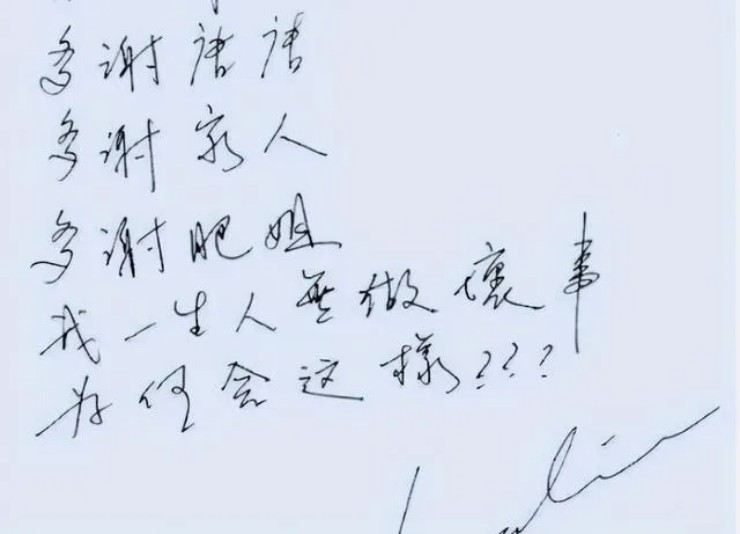 多谢唐唐
多谢家人
多谢肥姐
我一生人無做壞事
为何会这樣???